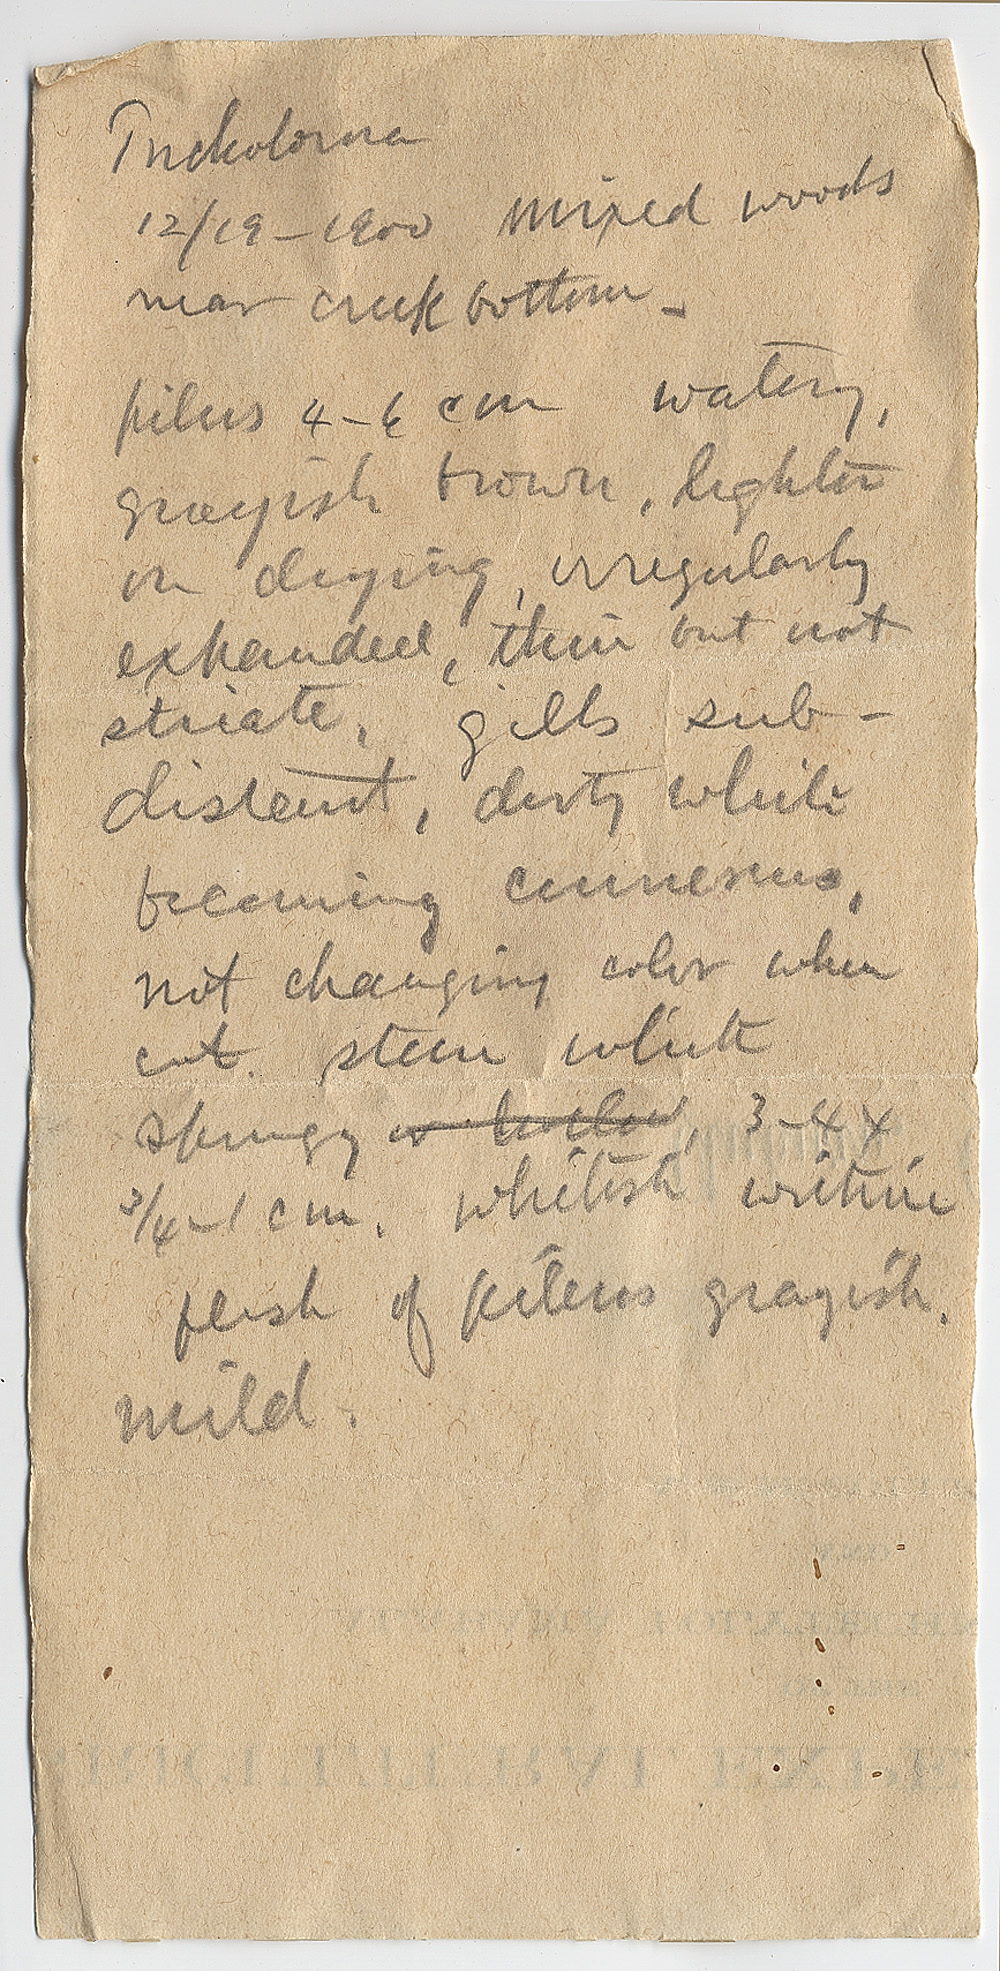 Tricholoma
12/19-1900 mixed woods
near creek bottom -
pileus 4-6 cm watery,
grayish brown, lighter
on drying, irregularly
expanded, thin but not
striate, gills sub-
distant, dirty white
becoming cinereus,
not changing color when
cut. stem white
spongy or hollow, 3-4 x
3/4-1 cm. whitish within
flesh of pileus grayish.
mild.